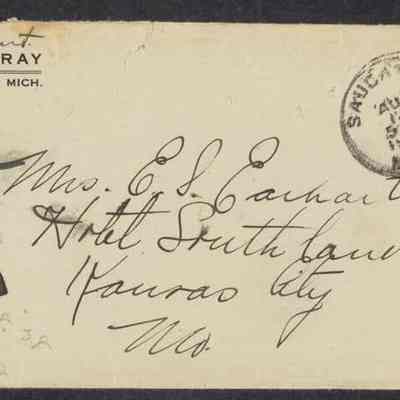 RAY
MICH.
SAUGAT
AU
Mrs. E. S. Earhart
Hotel Southland
Kansas City
Mo.